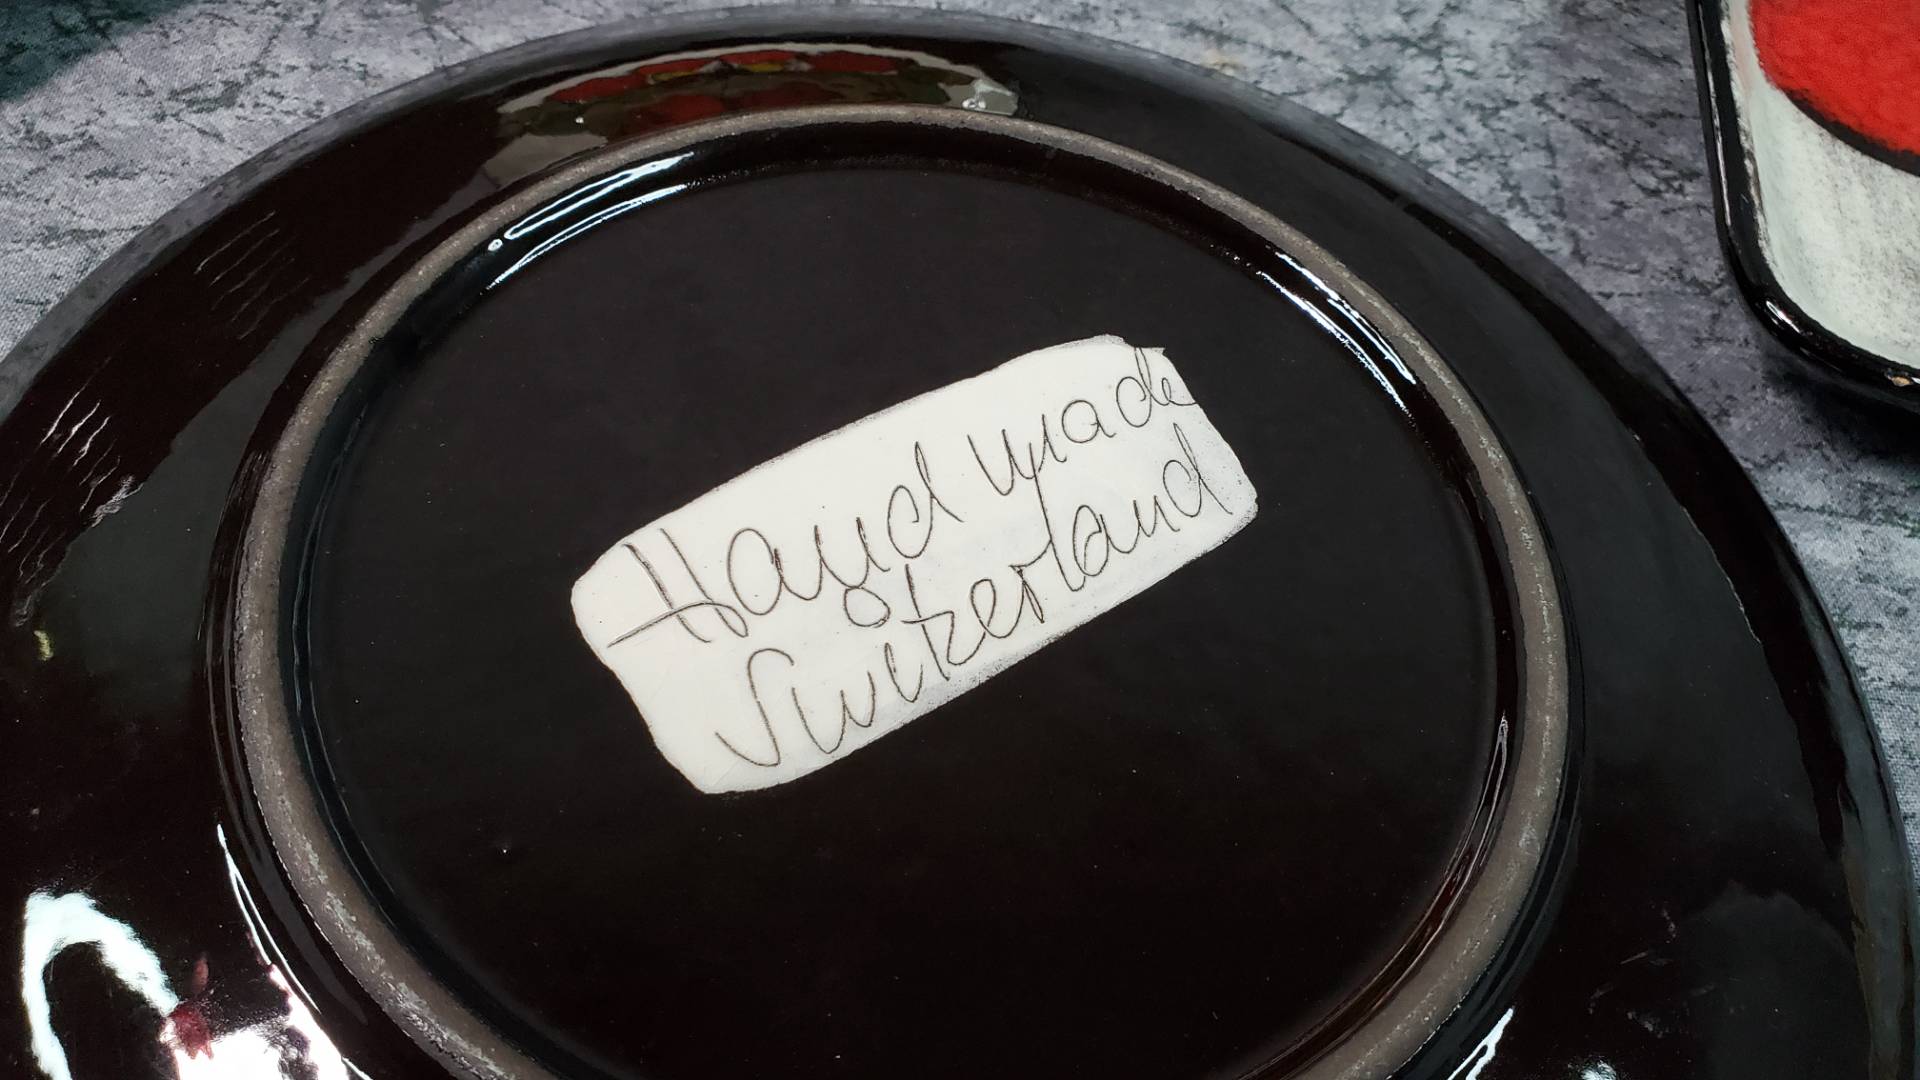 Hand made
Switzerland